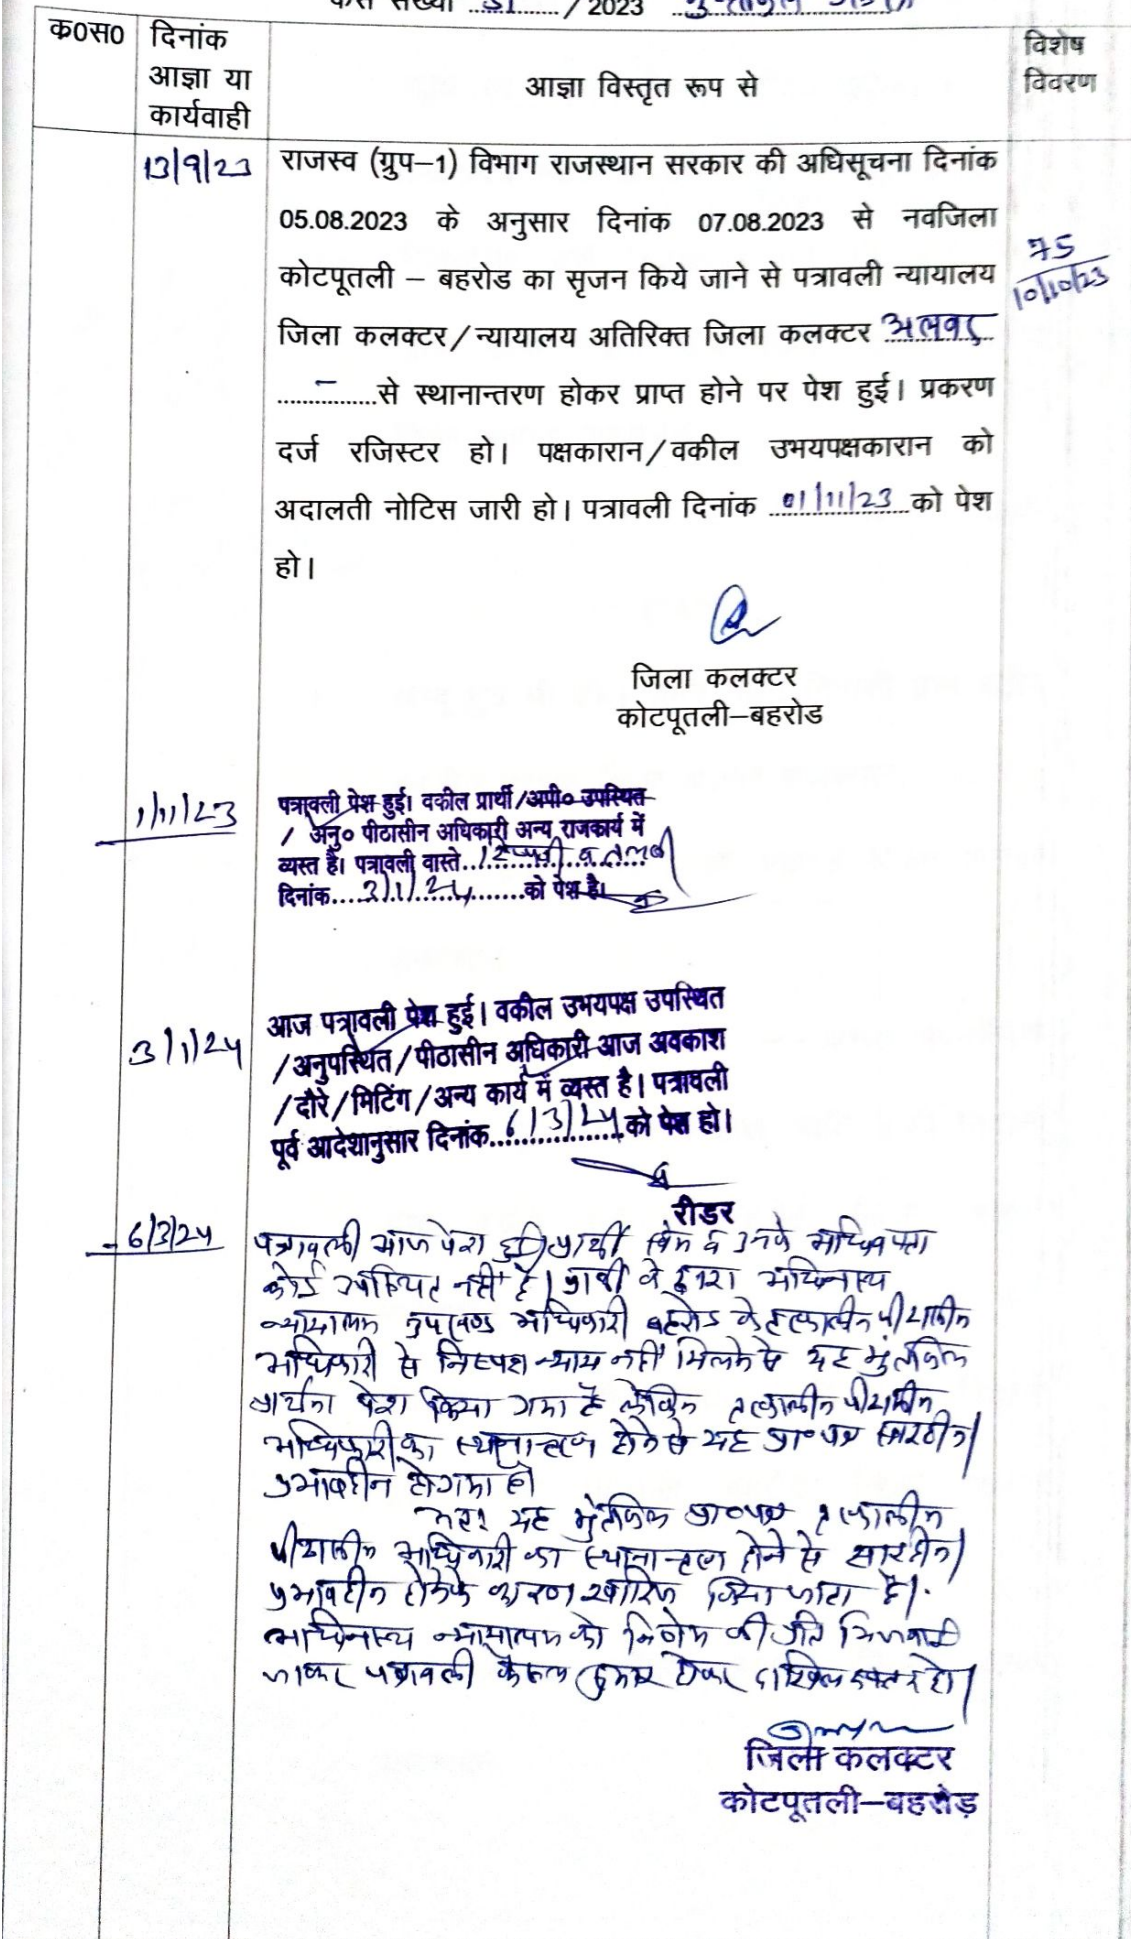 केस संख्या 31 / 2023
क0स0 दिनांक आज्ञा या कार्यवाही आज्ञा विस्तृत रूप से विशेष विवरण
13/9/23 राजस्व (ग्रुप–1) विभाग राजस्थान सरकार की अधिसूचना दिनांक
05.08.2023 के अनुसार दिनांक 07.08.2023 से नवजिला
कोटपूतली – बहरोड का सृजन किये जाने से पत्रावली न्यायालय
जिला कलक्टर/न्यायालय अतिरिक्त जिला कलक्टर अलवर
................से स्थानान्तरण होकर प्राप्त होने पर पेश हुई। प्रकरण
दर्ज रजिस्टर हो। पक्षकारान/वकील उभयपक्षकारान को
अदालती नोटिस जारी हो। पत्रावली दिनांक 01/11/23 को पेश
हो।
75
10/10/23
जिला कलक्टर
कोटपूतली–बहरोड
1/11/23 पत्रावली पेश हुई। वकील प्रार्थी/अपी० उपस्थित
/ अनु० पीठासीन अधिकारी अन्य राजकार्य में
व्यस्त है। पत्रावली वास्ते व तलबी
दिनांक....3/1/24........को पेश है।
3/1/24 आज पत्रावली पेश हुई। वकील उभयपक्ष उपस्थित
/अनुपस्थित/पीठासीन अधिकारी आज अवकाश
/दौरे/मिटिंग/अन्य कार्य में व्यस्त है। पत्रावली
पूर्व आदेशानुसार दिनांक 6/3/24 को पेश हो।
रीडर
6/3/24 पत्रावली आज पेश हुई। प्रार्थी व उनके अधिवक्ता
कोई उपस्थित नहीं है। प्रार्थी के द्वारा अधिनस्थ
न्यायालय उपखण्ड अधिकारी बहरोड के तत्कालीन पीठासीन
अधिकारी से निष्पक्ष न्याय नहीं मिलने से यह मुन्तकिल
प्रार्थना पेश किया गया है लेकिन तत्कालीन पीठासीन
अधिकारी का स्थानान्तरण होने से यह प्रा०पत्र सारहीन/
प्रभावहीन हो गया है।
अतः यह मुन्तकिल प्रा०पत्र तत्कालीन
पीठासीन अधिकारी का स्थानान्तरण होने से सारहीन/
प्रभावहीन होने के कारण खारिज किया जाता है।
अधिनस्थ न्यायालय को निर्णय की प्रति भिजवाई
जाकर पत्रावली फैसल शुमार होकर दाखिल दफ्तर हो।
जिला कलक्टर
कोटपूतली–बहरोड़